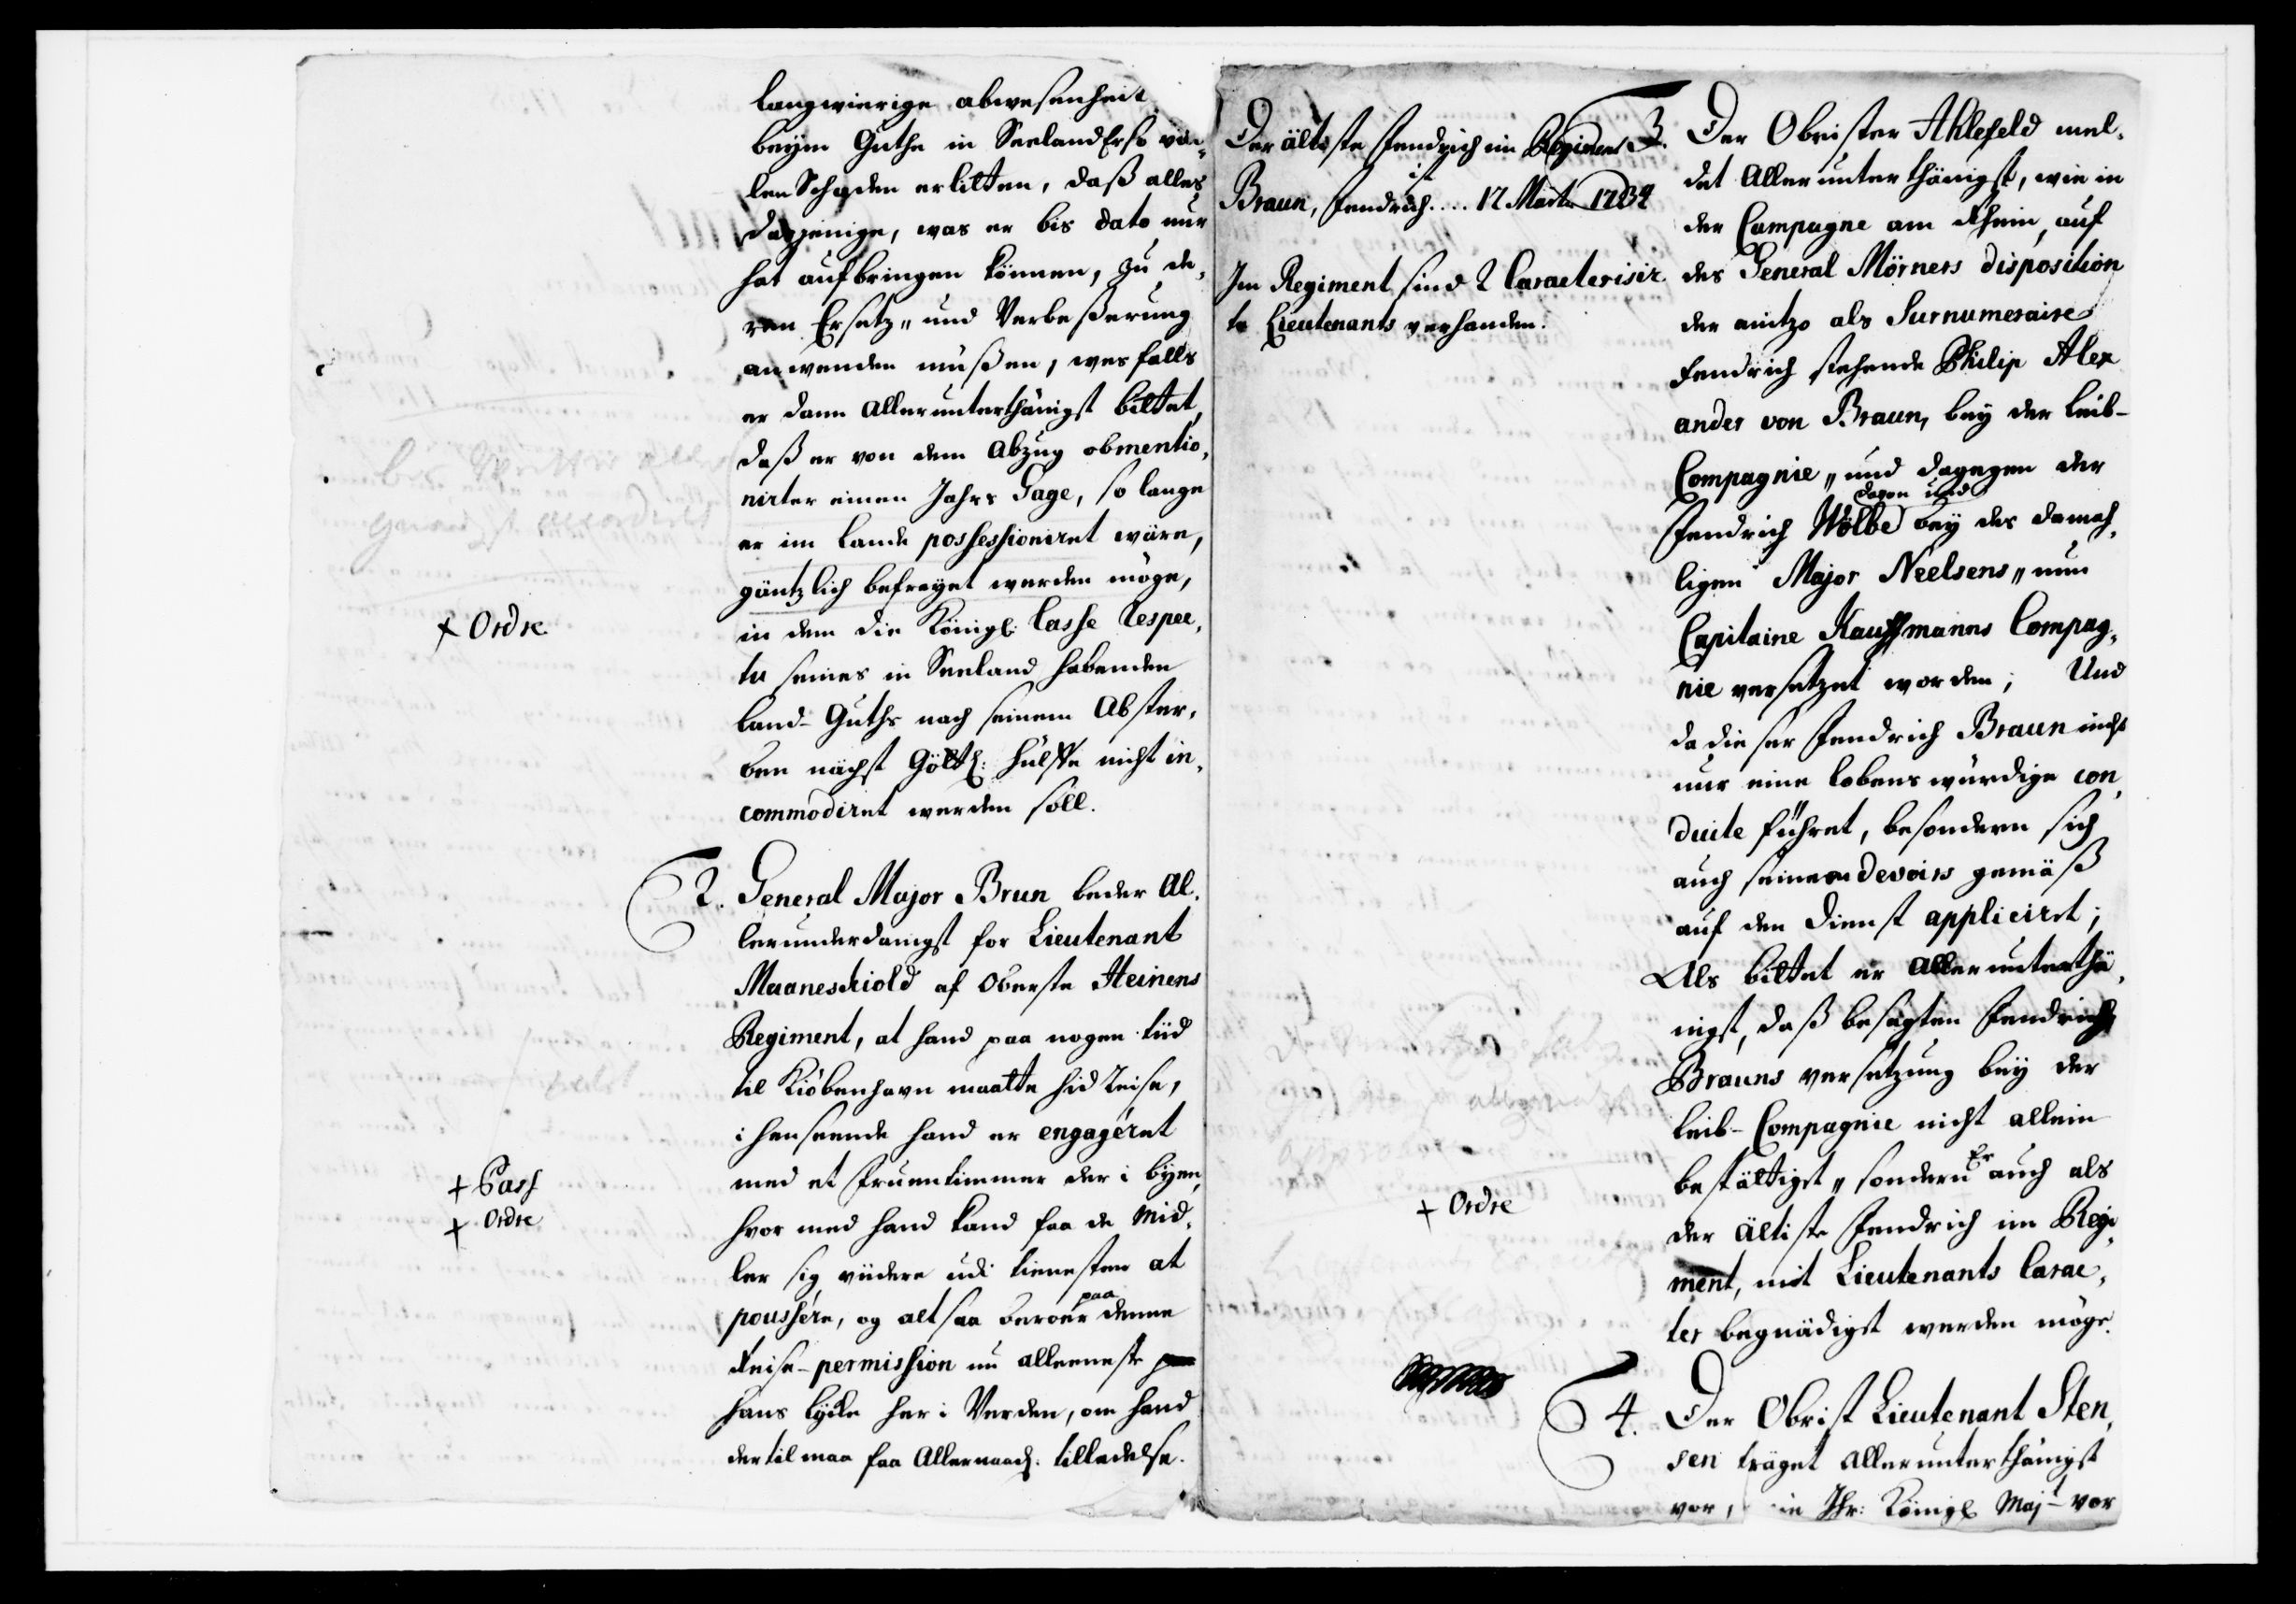 langwierige abwesenheit
beym Guthe in Seeland Er so vie¬
len Schaden erlitten, daß alles
dasjenige, was er bis dato nur
hat aufbringen können, zu de¬
ren Ersetz„ und Verbeßerung
anwenden müßen, wes falls
er dann allerunterthänigst bittet,
daß er von dem Abzug obmentio¬
nirter einen Jahrs Gage, so lange
er im Lande possessioniret wäre,
gäntzlich befreyet werden möge,
in dem die Königl: Casse respec¬
tu seines in Seeland habenden
Land-Guths nach seinem Abster¬
ben nächst Göttl: Hülffe nicht in¬
commodiret werden soll.
+ Ordre
2. General Major Brun beder Al¬
lerunderdanigst for Lieutenant
Maaneschiold af Oberste Heinens
Regiment, at hand paa nogen tiid
til Kiöbenhavn maatte hid reise,
i henseende hand er engagéret
med et Fruentimmer der i byen,
hvor med hand kand faa de Mid¬
ler sig viidere udi tienesten at
pousséra, og alt saa beroer paa denne
Reise-permission nu alleeneste
hans lycke her i Verden, om hand
dertil maa faa Allernaad: tilladelse.
+ Pass
+ Ordre
Der älteste Fendrich im Regiment
ist
Braun, Fendrich.... 12 Martii 1734
Im Regiment sind 2 Caracterisir
te Lieutenants verhanden.
3. Der Obrister Ahlefeld mel¬
det Allerunterthänigst, wie in
der Campagne am Rhein, auf
des General Mörners disposition
der anitzo als Surnumeraire
Fendrich stehende Philip Alex
ander von Braun, bey der Leib-
Compagnie„ und dagegen der
Fendrich Wölbe davon und bey des damah¬
ligen Major Neelsens„ nun
Capitaine Kauffmanns Compag¬
nie versetzet worden; Und
da dieser Fendrich Braun nicht
nur eine lobenswürdige con¬
duite führet, besondern sich
auch seinen devoirs gemäß
auf den Dienst appliciret;
Als bittet er Allerunterthä¬
nigst, daß besagten Fendrich
Brauns versetzung bey der
Leib-Compagnie nicht allein
bestättiget„ sondern Er auch als
der Ältiste Fendrich im Regi¬
ment, mit Lieutenants Carac¬
ter begnädiget werden möge.
+ Ordre
4. Der Obrist Lieutenant Sten¬
sen träget allerunterthänigst
vor, Ihr: Königl Majt vor